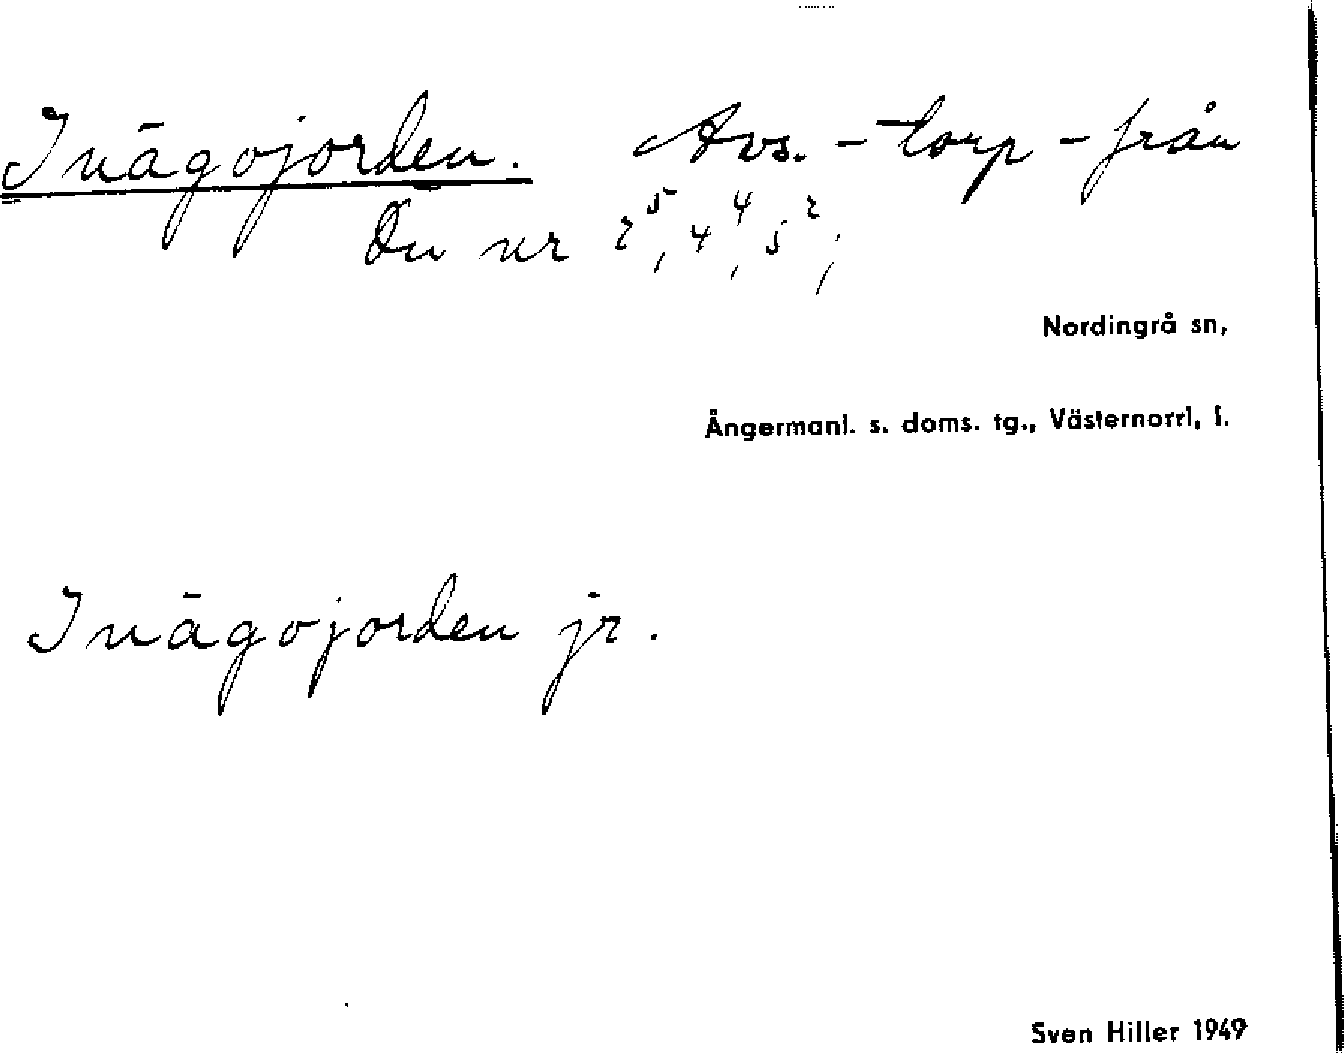 Inägojorden. Avs. - torp - från
Du nr 2⁵, 4⁴, 5²;
Nordingrå sn,
Ångermanl. s. doms. tg., Västernorrl, l.
Inägojorden jr.
Sven Hiller 1949